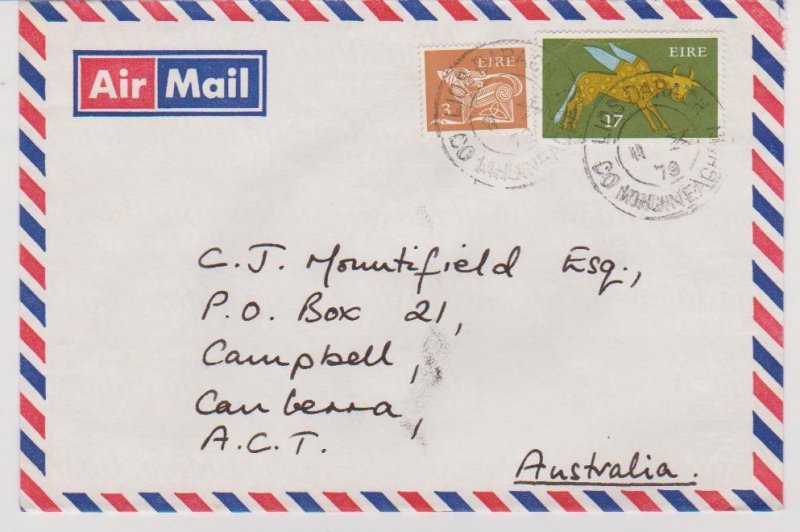 Air Mail
EIRE
3
EIRE
17
LIOS DARACH
CO MHUINEACHÁIN
79
C.J. Mountifield Esq.,
P.O. Box 21,
Campbell,
Canberra,
A.C.T.
Australia.